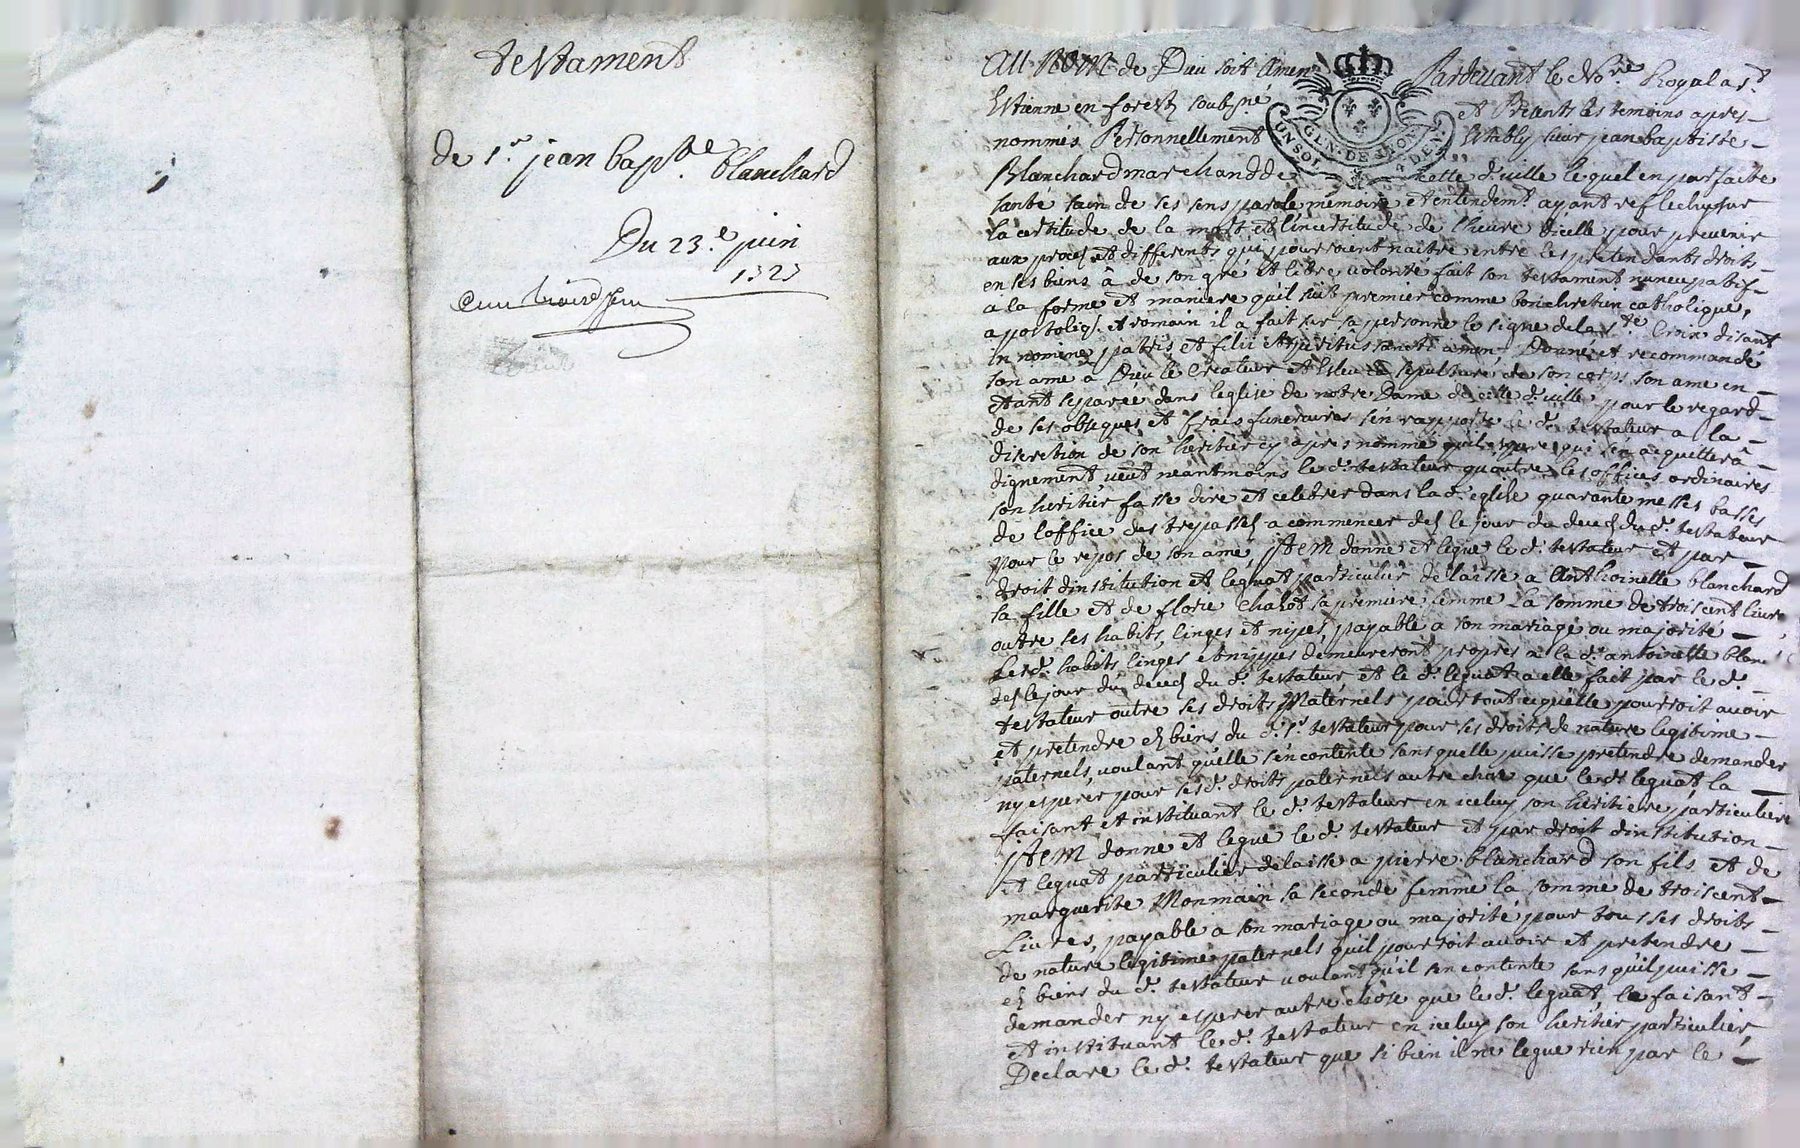 testament
de Sr. jean bapte. blanchard
Du 23.e juin
1323
AU NOM de Dieu soit Amen Pardevant le Nore. Royal a St.
Estienne en forest soubz.né et Presents les temoins apres
nommés Personnellement Estably sieur jean baptiste
UN SOL GEN. DE LYON DEN.
Blanchard marchand de cette d. ville lequel en parfaitte
santé sain de ses sens parole memoire et entendemt. ayant reflechy sur
la certitude de la mort et l'incertitude de l'heure d'icelle pour prevenir
aux proces et differents qui pourroient naitre entre les pretendants droits
en ses biens à de son gré et libre volonté fait son testament nuncupatif
a la forme et maniere qu'il suit premier comme bon chretien catholique,
apostoliq. et romain il a fait sur sa personne le signe de la Ste. Croix disant
In nomine patris et filii et spiritus sancti amen. Donné et recommandé
son ame a Dieu le Createur et Esleu la sepulture de son corps son ame en
etant separée dans leglise de notre Dame de cette d. ville pour le regard
de ses obseques et frais funeraires s'en rapporte le d. testateur a la
discretion de son heritier cy apres nommé qu'il espere qui s'en acquittera
dignement, veut neantmoins le d. testateur qu'outre les offices ordinaires
son heritier fasse dire et celebrer dans lad. eglise quarante messes basses
de l'office des trepassez a commencer dez le jour du decez du d. testateur
pour le repos de son ame, ITEM donne et legue le d. testateur et par
droit dinstitution et leguat particulier delaisse a Anthoinette blanchard
sa fille et de florie Chazot sa premiere femme La somme de troiscent livres
outre ses habits, linges et nipes, payable a son mariage ou majorité
Lesd. habits linges et nippes demeureront propres a la d. antoinette blanc
dez le jour du decez du d. testateur et le d. leguat a elle fait par le d.
testateur outre ses droits Maternels pour tout ce quelle pourroit avoir
et pretendre ez biens du d. Sr. testateur pour ses droits de nature legitime
paternels, voulant qu'elle s'en contente sans quelle puisse pretendre demander
ny esperer pour sesd. droits paternels autre chose que led. leguat la
faisant et instituant le d. testateur en iceluy son heritiere particuliere
ITEM donne et legue le d. testateur et par droit dinstitution
et leguat particulier delaisse a pierre blanchard son fils et de
marguerite Monmain sa seconde femme la somme de troiscent
Livres, payable a son mariage ou majorité pour tous ses droits
de nature legitime paternels quil pourroit avoir et pretendre
ez biens du d. testateur voulant qu'il s'en contente sans qu'il puisse
demander ny esperer autre chose que le d. leguat, le faisant
et instituant le d. testateur en iceluy son heritier particulier
Declare le d. testateur que si bien il ne legue rien par le